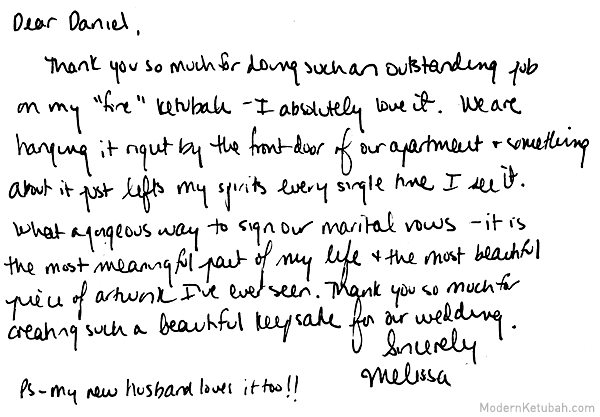 Dear Daniel,
Thank you so much for doing such an outstanding job
on my "fire" ketubah - I absolutely love it. We are
hanging it right by the front door of our apartment + something
about it just lifts my spirits every single time I see it.
What a gorgeous way to sign our marital vows - it is
the most meaningful part of my life + the most beautiful
piece of artwork I've ever seen. Thank you so much for
creating such a beautiful keepsake for our wedding.
Sincerely
Melissa
Ps - my new husband loves it too!!
ModernKetubah.com